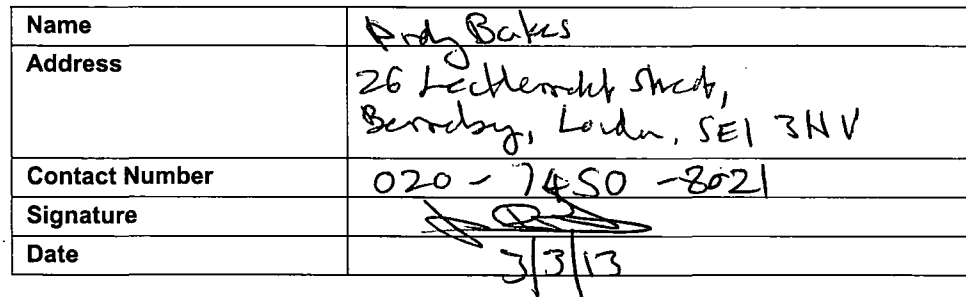 Name Andy Bakes
Address
26 Leathermarket Street,
Bermondsey, London, SE1 3HV
Contact Number 020 - 7450 - 8021
Signature
Date 3/3/13